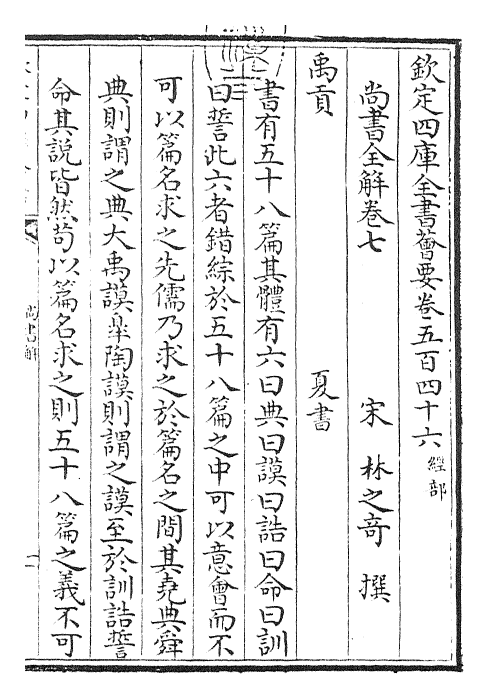 欽定四庫全書薈要卷五百四十六 經部
尚書全解卷七
宋 林之奇 撰
禹貢
夏書
書有五十八篇其體有六曰典曰謨曰誥曰命曰訓
曰誓此六者錯綜於五十八篇之中可以意會而不
可以篇名求之先儒乃求之於篇名之間其堯典舜
典則謂之典大禹謨臯陶謨則謂之謨至於訓誥誓
命其說皆然苟以篇名求之則五十八篇之義不可